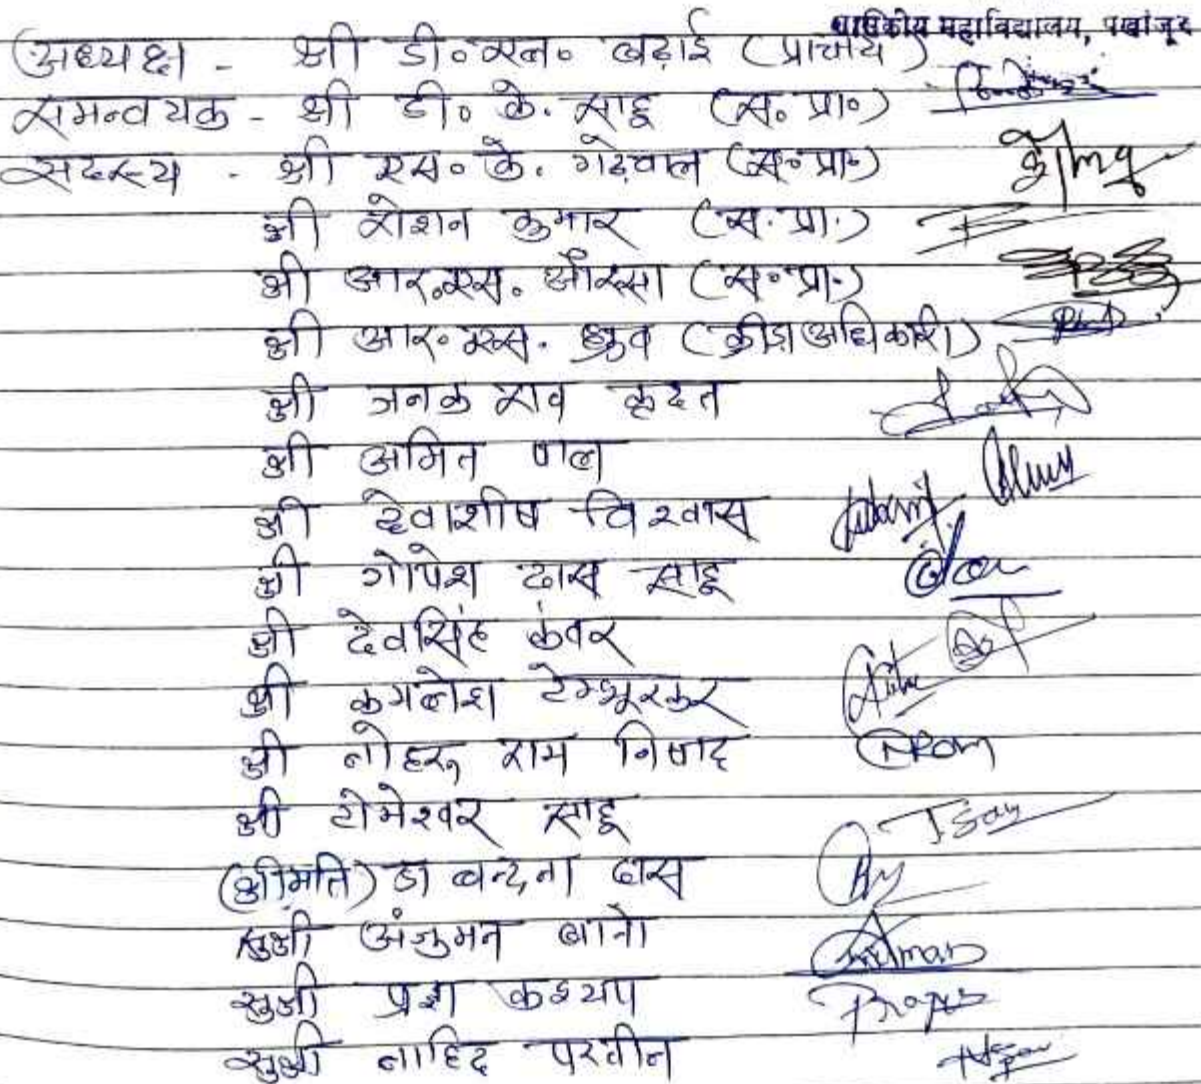 शासकीय महाविद्यालय, पखांजूर
अध्यक्ष - श्री डी॰एन॰ बढ़ाई (प्राचार्य)
समन्वयक - श्री डी॰ के. साहू (स॰ प्रा॰)
सदस्य - श्री एस॰ के. गढ़ेवाल (स॰ प्रा॰)
श्री रोशन कुमार (स. प्रा.)
श्री आर.एस. औरसा (स॰ प्रा.)
श्री आर॰ एस. ध्रुव (क्रीड़ा अधिकारी)
श्री जनक राव हृदत
श्री अमित पाल
श्री देवाशीष विश्वास
श्री गोपेश दास साहू
श्री देवसिंह कंवर
श्री कमलेश टेम्भूरकर
श्री लोहरू राम निषाद
श्री टोमेश्वर साहू
(श्रीमति) डा बन्दना दास
सुश्री अंजुमन बानो
सुश्री प्रज्ञा कश्यप
सुश्री नाहिद परवीन